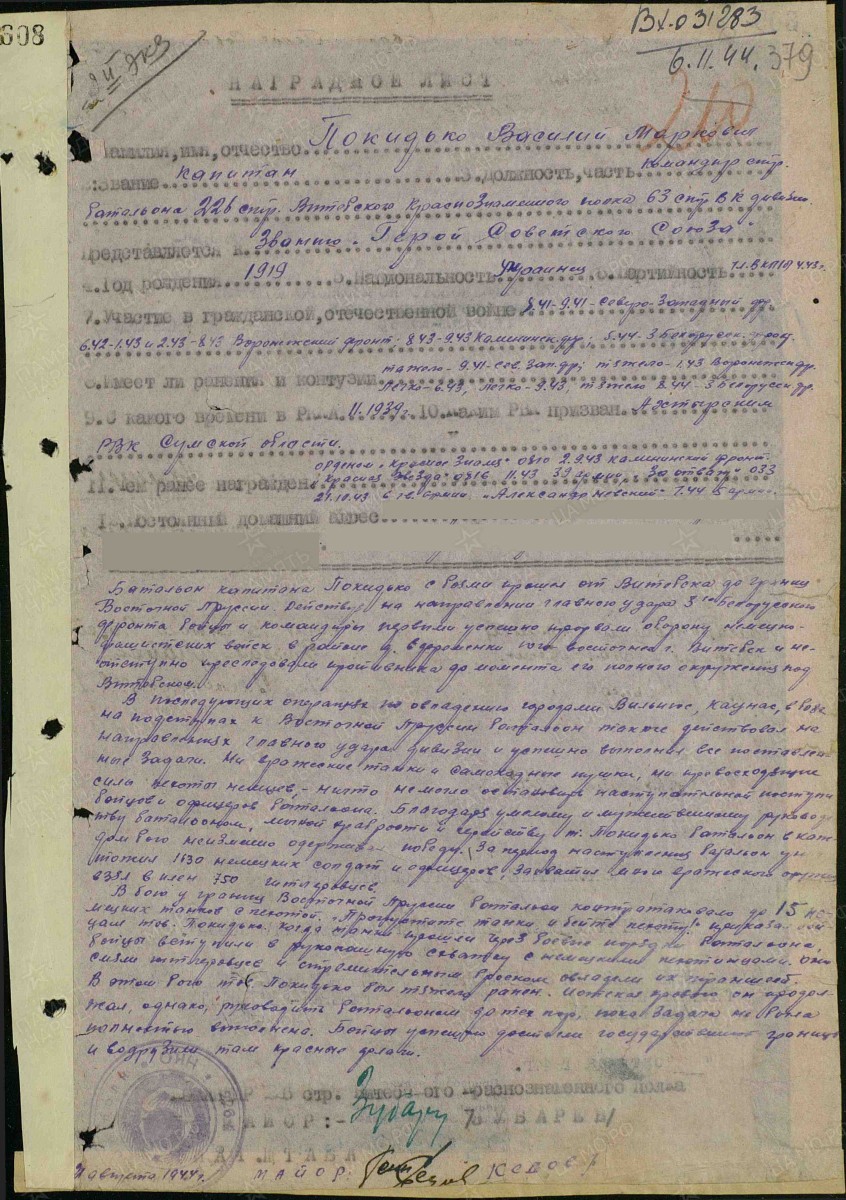 608
Вх-031283
6.11.44. 379
II экз
210
НАГРАДНОЕ ЛИСТ
Фамилия, имя, отчество Покидько Василий Маркович
2. Звание капитан 3. Должность, часть командир стр.
батальона 226 стр. Витебского Краснознаменного полка 63 стр. ВК дивизии
Представляется к Званию "Герой Советского Союза"
4. Год рождения 1919 5. Национальность Украинец 6. Партийность чл. ВКП(б) 4.43г.
7. Участие в гражданской, отечественной войне 8.41-9.41-Северо-Западный фр.
6.42-1.43 и 2.43-8.43 Воронежский фронт. 8.43-9.43 Калининск.фр; 5.44-3 Белорусск. фронт
8. Имеет ли ранения и контузии тяжело-9.41-Сев.Зап.фр; тяжело-1.43 Воронежск.фр.
легко-6.43, легко-9.43, тяжело 8.44-3 Белорусск.фр.
9. С какого времени в РККА 11.1939г. 10. Каким РВК призван
РВК Сумской области.
орденом "Красное Знамя" 0210 2.9.43 Калининский фронт
11. Чем ранее награжден "Красная Звезда" 0216 11.43 39 армии, "За отвагу" 033
21.10.43 6 гв. армии. "Александр Невский" 7.44 5 армии.
12. Постоянный домашний адрес
Батальон капитана Покидько с боями прошел от Витебска до границ
Восточной Пруссии. Действуя на направлении главного удара 3го Белорусского
фронта бойцы и командиры первыми успешно прорвали оборону немецко-
фашистских войск в районе д. юго восточнее г. Витебск и не-
отступно преследовали противника до момента его полного окружения под
Витебском.
В последующих операциях по овладению городами Вильнюс, Каунас, в боях
на подступах к Восточной Пруссии батальон также действовал на
направлениях главного удара дивизии и успешно выполнял все поставлен-
ные задачи. Ни вражеские танки и самоходные пушки, ни превосходящие
силы пехоты немцев,- ничто не могло остановить наступательной поступи
бойцов и офицеров батальона. Благодаря умелому и мужественному руковод-
ству батальоном, личной храбрости и геройству т. Покидько батальон в каж-
дом бою неизменно одерживал победу. За период наступления батальон ун-
тожил 1130 немецких солдат и офицеров, захватил много вражеского оружия,
взял в плен 750 гитлеровцев.
В бою у границ Восточной Пруссии батальон контратаковало до 15 не-
мецких танков с пехотой. "Пропустите танки и бейте пехоту!" приказал бой-
цам тов. Покидько. Когда танки прошли через боевые порядки батальона,
бойцы вступили в рукопашную схватку с немецкими пехотинцами. Они
смяли гитлеровцев и стремительным броском овладели их траншеей.
В этом бою тов. Покидько был тяжело ранен. Истекая кровью он продол-
жал, однако, руководить батальоном до тех пор, пока задача не была
полностью выполнена. Бойцы успешно достигли государственной границы
и водрузили там красные флаги.
Командир 226 стр. Витебского Краснознаменного полка
МАЙОР:- /ЗУБАРЕВ/
НАЧ.ШТАБА
августа 1944г. МАЙОР